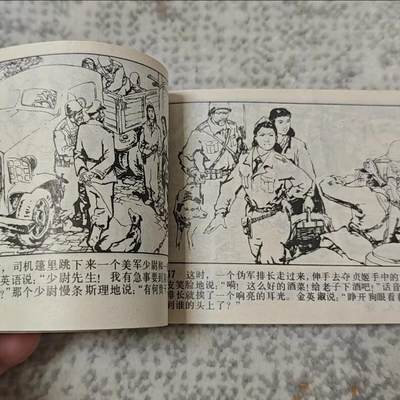 ，司机篷里跳下来一个美军少尉和一
英语说：“少尉先生！我有急事要到
？”那个少尉慢条斯理地说：“有何贵
37 这时，一个伪军排长走过来，伸手去夺贞姬手中的
皮笑脸地说：“嗬！这么好的酒菜！给老子下酒吧！”话音
排长就挨了一个响亮的耳光。金英淑说：“睁开狗眼看看
到谁的头上了？”